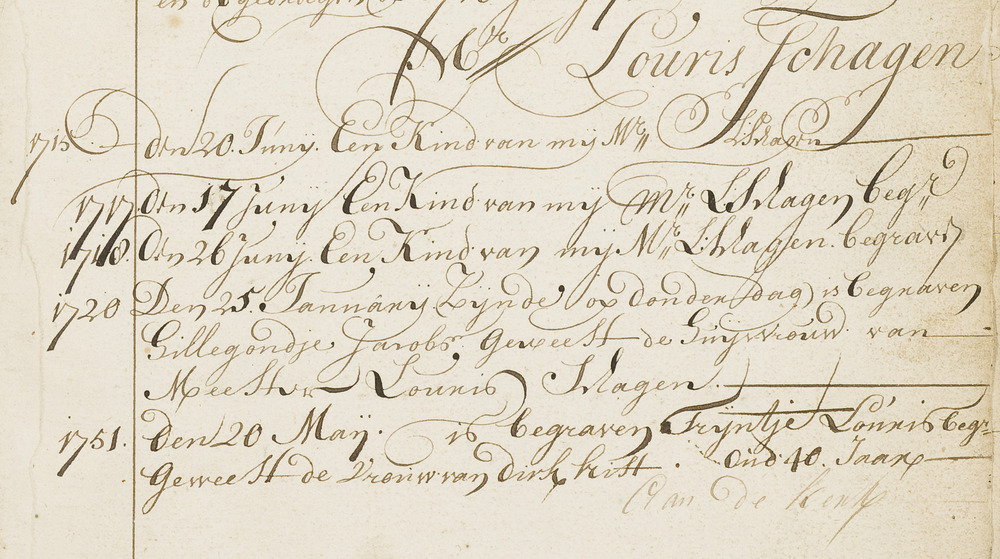 Mr Louris Schagen
1715 den 20. Juny. Een Kind van mij Mr L:Schagen
1717 den 17 Juny Een Kind van mij Mr L:Schagen begr
1718. den 26 Juny. Een Kind van mij Mr L:Schagen. begraven
1720 Den 25. January Zijnde op donderdag is begraven
Gillegondje Jacobs Geweest de Huijsvrouw van
Meester Louris Schagen.
1751. Den 20 Maij. is begraven Trijntje Louris begr
Geweest de Vrouw van dirk kist. Oud 40. Jaar
Aan de kerk